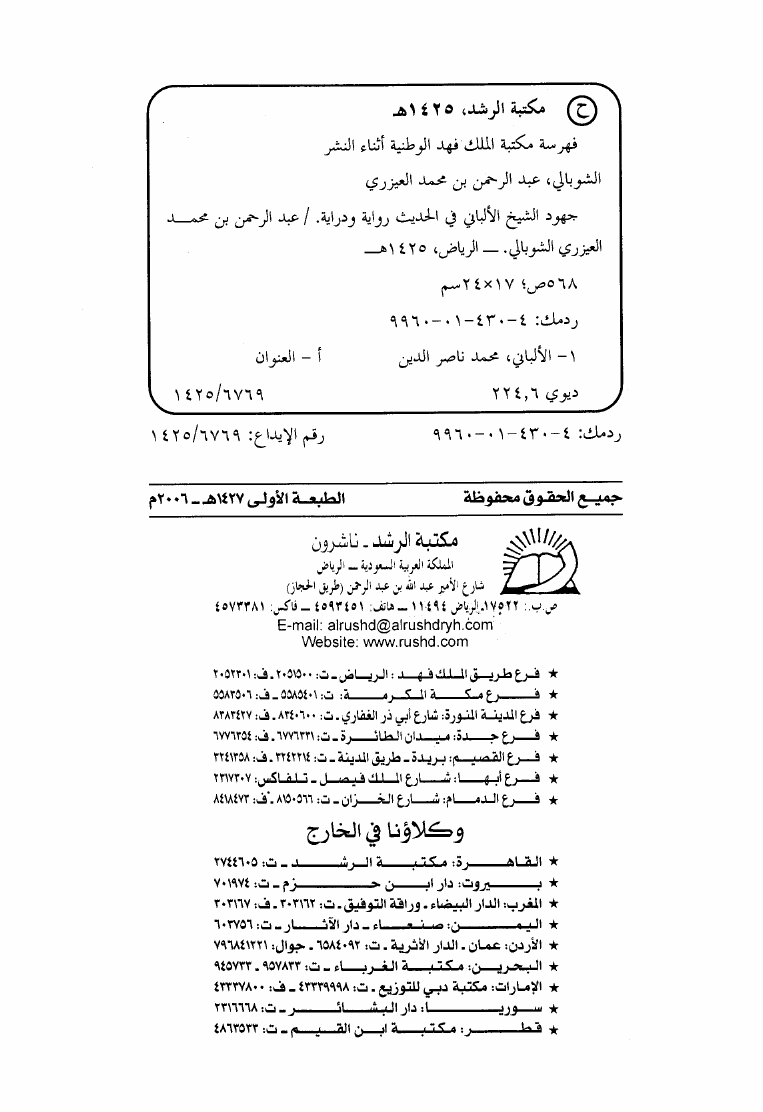 ح مكتبة الرشد، ١٤٢٥هـ
فهرسة مكتبة الملك فهد الوطنية أثناء النشر
الشوبالي، عبد الرحمن بن محمد العيزري
جهود الشيخ الألباني في الحديث رواية ودراية. / عبد الرحمن بن محمـــد
العيزري الشوبالي. ــ الرياض، ١٤٢٥هــ
٥٦٨ص؛ ١٧×٢٤سم
ردمك: ٤-٤٣٠-٠١-٩٩٦٠
١- الألباني، محمد ناصر الدين أ - العنوان
ديوي ٢٢٤,٦ ١٤٢٥/٦٧٦٩
ردمك: ٤-٤٣٠-٠١-٩٩٦٠ رقم الإيداع: ١٤٢٥/٦٧٦٩
جميع الحقوق محفوظة الطبعة الأولى ١٤٢٧هـ ـ ٢٠٠٦م
مكتبة الرشد ـ ناشرون
المملكة العربية السعودية ــ الرياض
شارع الأمير عبد الله بن عبد الرحمن (طريق الحجاز)
ص.ب.: ١٧٥٢٢ـالرياض ١١٤٩٤ ــ هاتف: ٤٥٩٣٤٥١ ــ فاكس: ٤٥٧٣٣٨١
E-mail: alrushd@alrushdryh.com
Website: www.rushd.com
★ فرع طريق الملك فهد : الرياض ـ ت: ٢٠٥١٥٠٠ ـ ف: ٢٠٥٢٣٠١
★ فرع مكة المكرمة: ت: ٥٥٨٥٤٠١ ـ ف: ٥٥٨٣٥٠٦
★ فرع المدينة المنورة: شارع أبي ذر الغفاري ـ ت: ٨٣٤٠٦٠٠ ـ ف: ٨٣٨٣٤٢٧
★ فرع جدة: ميدان الطائرة ـ ت: ٦٧٧٦٣٣١ ـ ف: ٦٧٧٦٣٥٤
★ فرع القصيم: بريدة ـ طريق المدينة ـ ت: ٣٢٤٢٢١٤ ـ ف: ٣٢٤١٣٥٨
★ فرع أبها: شارع الملك فيصل ـ تلفاكس: ٢٣١٧٣٠٧
★ فرع الدمام: شارع الخزان ـ ت: ٨١٥٠٥٦٦ ـ ف: ٨٤١٨٤٧٣
وكلاؤنا في الخارج
★ القاهرة: مكتبة الرشد ـ ت: ٢٧٤٤٦٠٥
★ بيروت: دار ابن حزم ـ ت: ٧٠١٩٧٤
★ المغرب: الدار البيضاء ـ وراقة التوفيق ـ ت: ٣٠٣١٦٢ ـ ف: ٣٠٣١٦٧
★ اليمن: صنعاء ـ دار الآثار ـ ت: ٦٠٣٧٥٦
★ الأردن: عمان ـ الدار الأثرية ـ ت: ٦٥٨٤٠٩٢ ـ جوال: ٧٩٦٨٤١٢٢١
★ البحرين: مكتبة الغرباء ـ ت: ٩٥٧٨٣٣ ـ ٩٤٥٧٣٣
★ الإمارات: مكتبة دبي للتوزيع ـ ت: ٤٣٣٣٩٩٩٨ ـ ف: ٤٣٣٣٧٨٠٠
★ سوريا: دار البشائر ـ ت: ٢٣١٦٦٦٨
★ قطر: مكتبة ابن القيم ـ ت: ٤٨٦٣٥٣٣